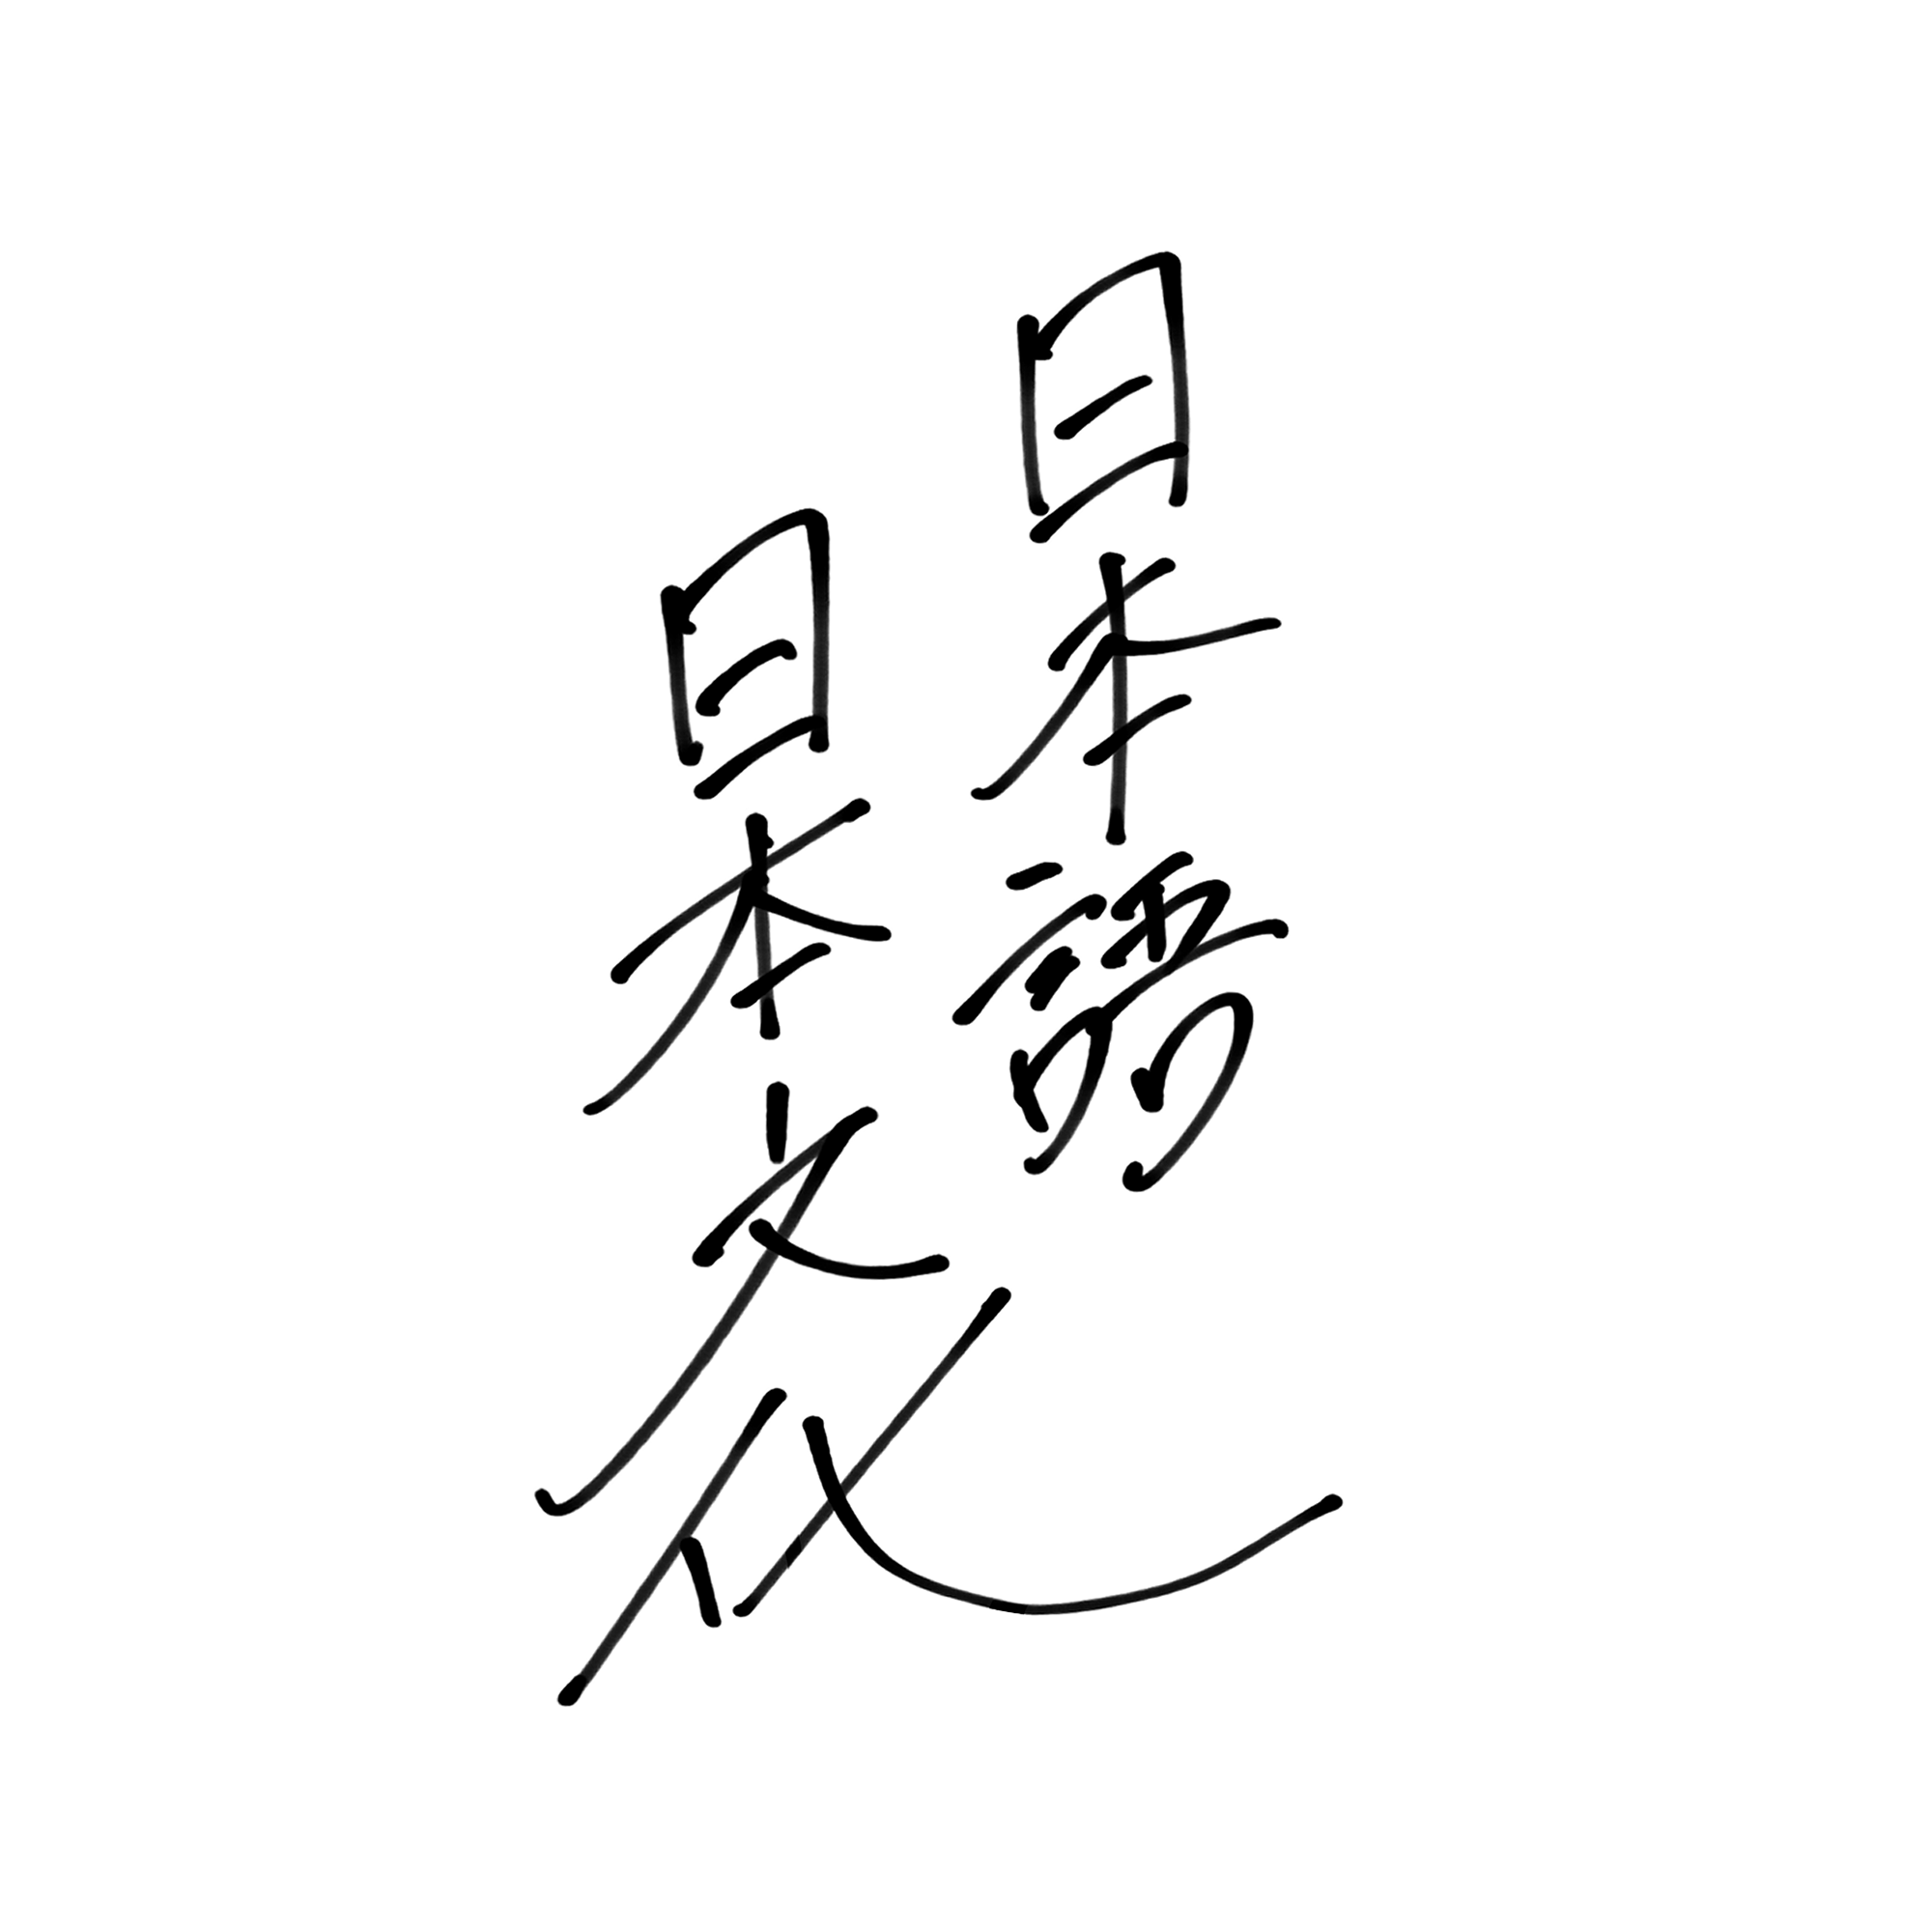 日本語
日本文化